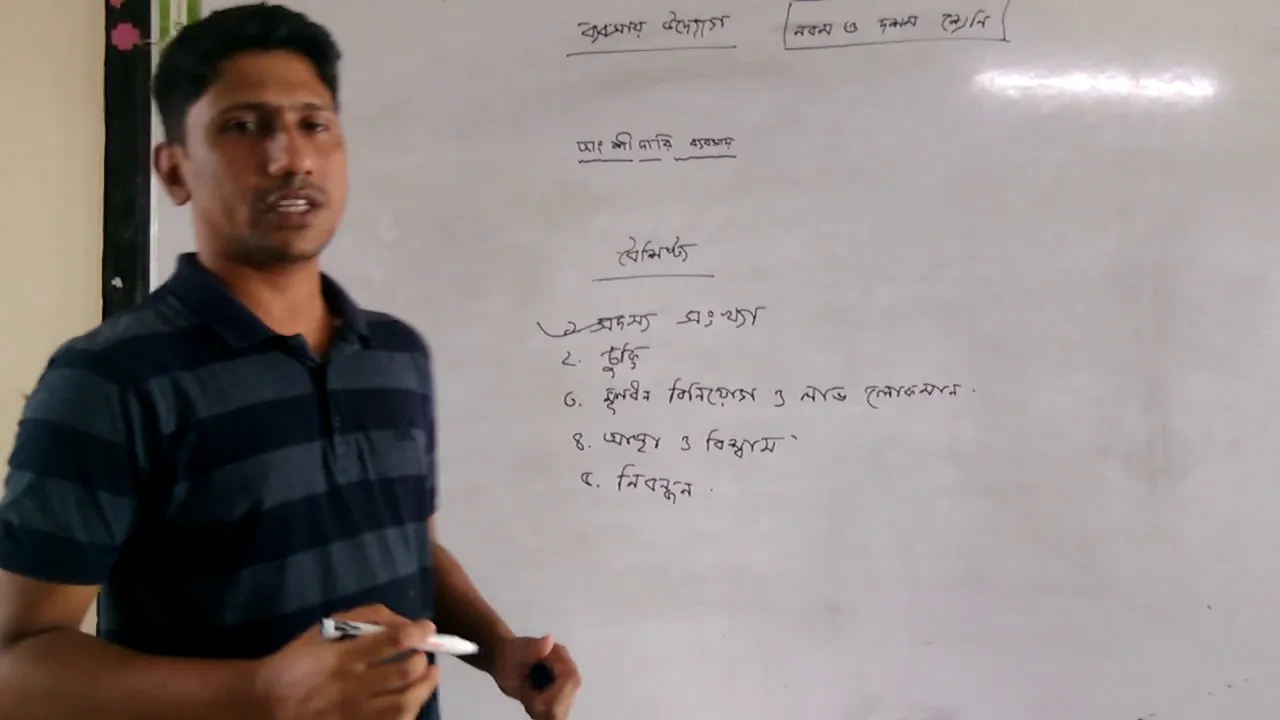 ব্যবসায় উদ্যোগ নবম ও দশম শ্রেণি
অংশীদারি ব্যবসায়
বৈশিষ্ট্য
১. সদস্য সংখ্যা
২. চুক্তি
৩. মূলধন বিনিয়োগ ও লাভ লোকসান.
৪. আস্থা ও বিশ্বাস
৫. নিবন্ধন.